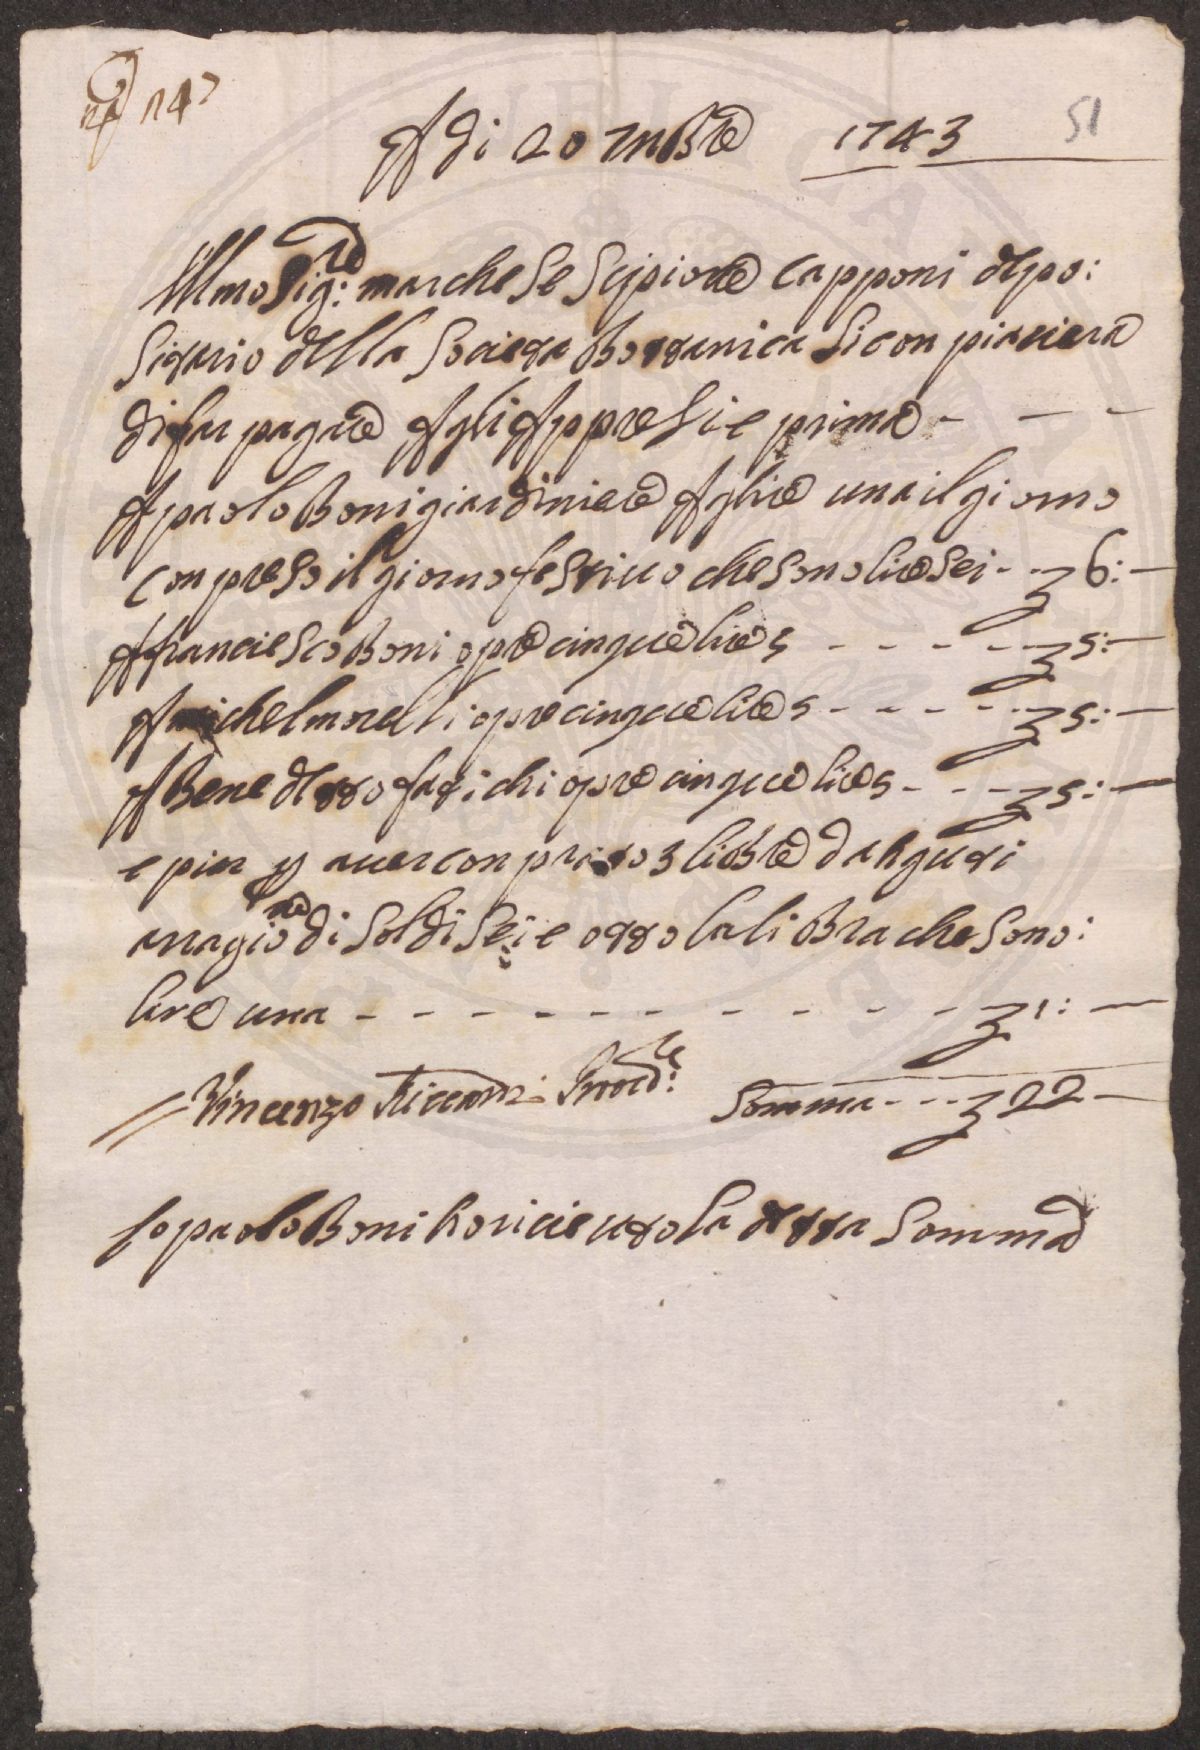 n° 147
A di 20 7mbre 1743
51
Ill.mo Sig:re marchese Scipione Capponi depo:
Sitario della Società Bottanica Si con piacierà
di far pagare A gli Appresi e prima - - -
A paolo Boni giardiniere A lire una il giorno
Conpreso il giorno festiuo che Sono lire Sei - - 6: -
A franciesco Boni opre cinque lire 5 - - - - - 5: -
A michel morelli opre cinque lire 5 - - - - - 5: -
A Benedetto fatichi opre cinque lire 5 - - - 5: -
e piu p auer con prato 3 libre d
a ragione di Soldi Sei e otto la libra che Sono:
lire una - - - - - - - - - - - - 1: -
Vincenzo Riccardi Proud:re Somma - - - 22 -
Io paolo Boni ho riceuto la detta Somma